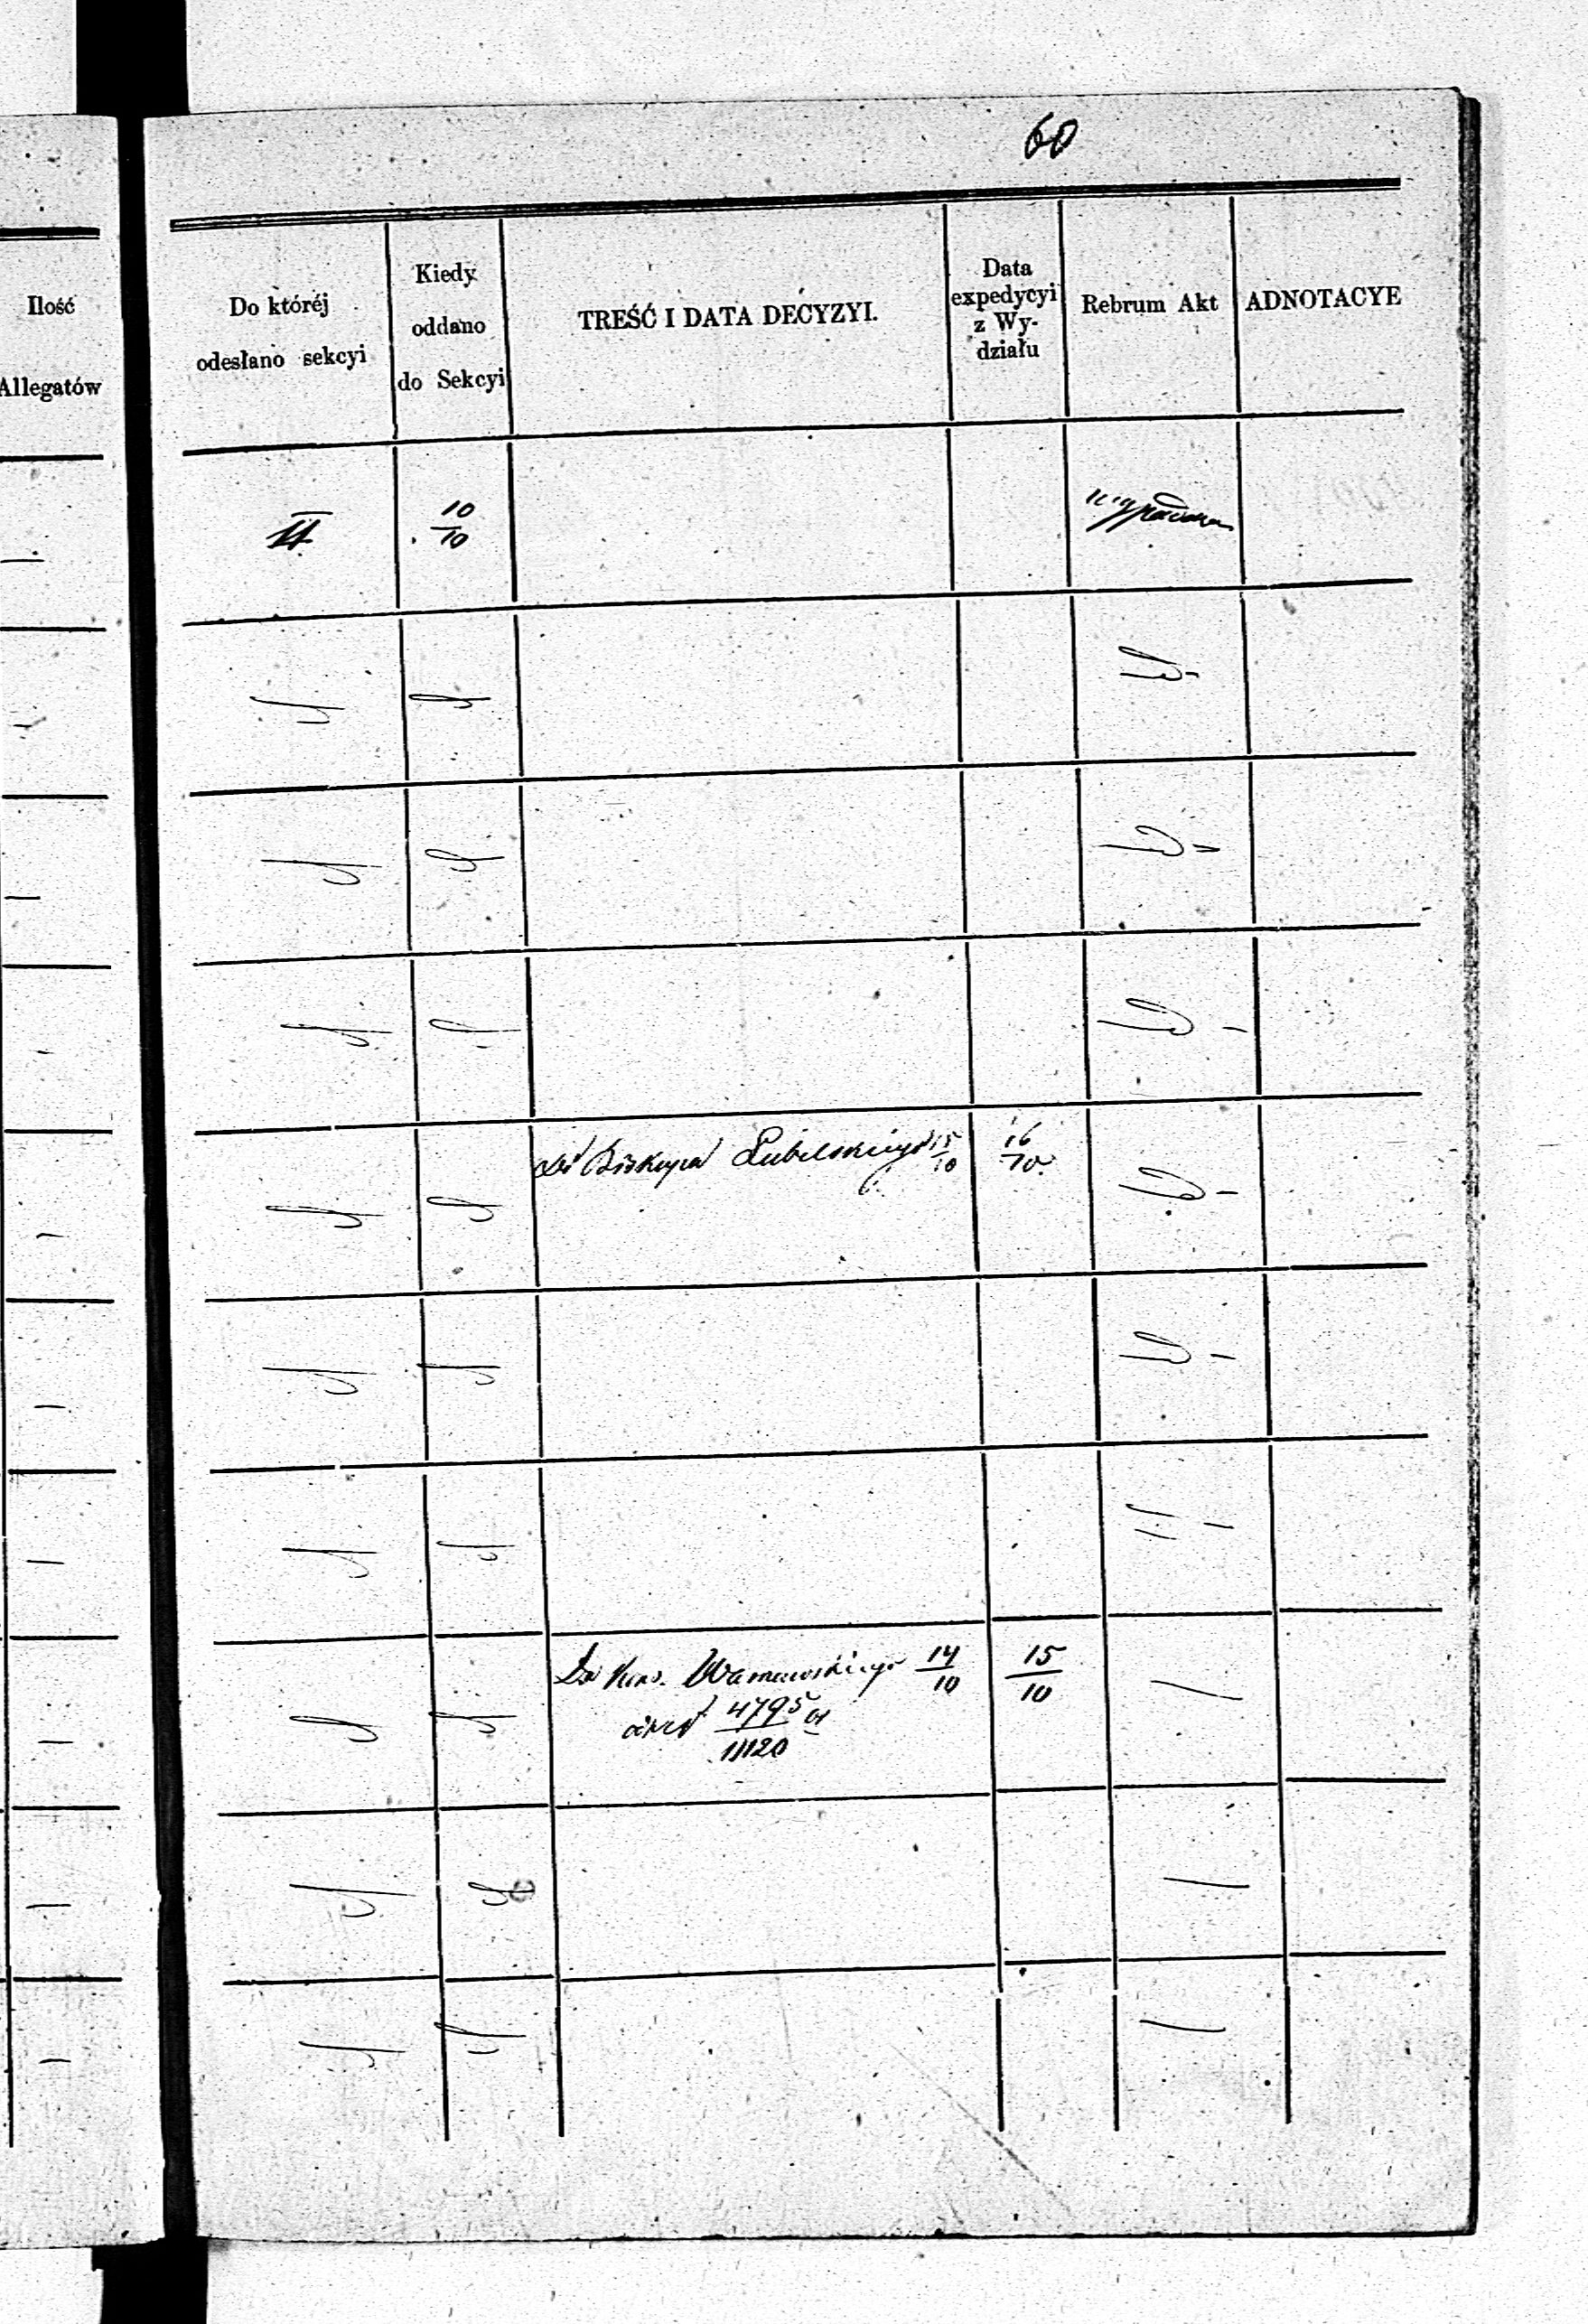 60
Ilość
Allegatów
Do któréj
odesłano sekcyi
Kiedy
oddano
do Sekcyi
TREŚĆ I DATA DECYZYI.
Data
expedycyi
z Wy-
działu
Rebrum Akt
ADNOTACYE
II
10/10
do Biskupa Lubelskiego 15/10
16/10
Do Kons. Warszawskiego 14/10
15/10
4795
11120